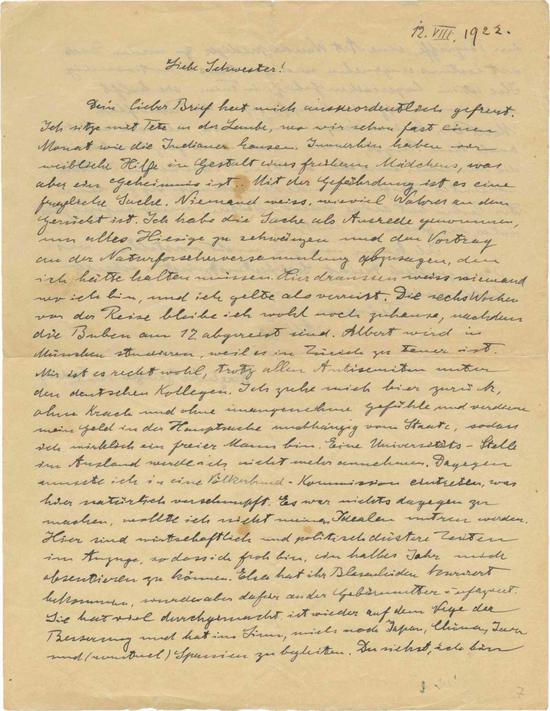 12. VIII. 1922.
Liebe Schwester!
Dein lieber Brief hat mich ausserordentlich gefreut.
Ich sitze mit Tete in der Laube, wo wir schon fast einen
Monat wie die Indianer hausen. Immerhin haben wir
weibliche Hilfe in Gestalt eines früheren Mädchens, was
aber ein Geheimnis ist. Mit der Gefährdung ist es eine
fragliche Sache. Niemand weiss, wieviel Wahres an dem
Gerücht ist. Ich habe die Sache als Ausrede genommen,
um alles Hiesige zu schwänzen und den Vortrag
an der Naturforscherversammlung abzusagen, den
ich hätte halten müssen. Hier draussen weiss niemand
wo ich bin, und ich gelte als verreist. Die sechs Wochen
vor der Reise bleibe ich wohl noch zuhause, nachdem
die Buben am 17 abgereist sind. Albert wird in
München studieren, weil es in Zürich zu teuer ist.
Mir ist es recht wohl, trotz allen Antisemiten unter
den deutschen Kollegen. Ich ziehe mich hier zurück,
ohne Krach und ohne unangenehme Gefühle und verdiene
mein Geld in der Hauptsache unabhängig vom Staate, sodass
ich wirklich ein freier Mann bin. Eine Universitäts-Stelle
im Ausland werde ich nicht mehr annehmen. Dagegen
musste ich in eine Völkerbund-Kommission eintreten, was
hier natürlich verschnupft. Es war nichts dagegen zu
machen, wollte ich nicht meinen Idealen untreu werden.
Hier sind wirtschaftlich und politisch düstere Zeiten
im Anzuge, sodass ich froh bin, ein halbes Jahr mich
absentieren zu können. Elsa hat ihr Blasenleiden kuriert
bekommen, wurde aber dafür an der Gebärmutter
Sie hat viel durchgemacht, ist wieder auf dem Wege der
Besserung und hat im Sinn, mich nach Japan, China, Java
und (eventuel) Spanien zu begleiten. Du siehst, ich bin